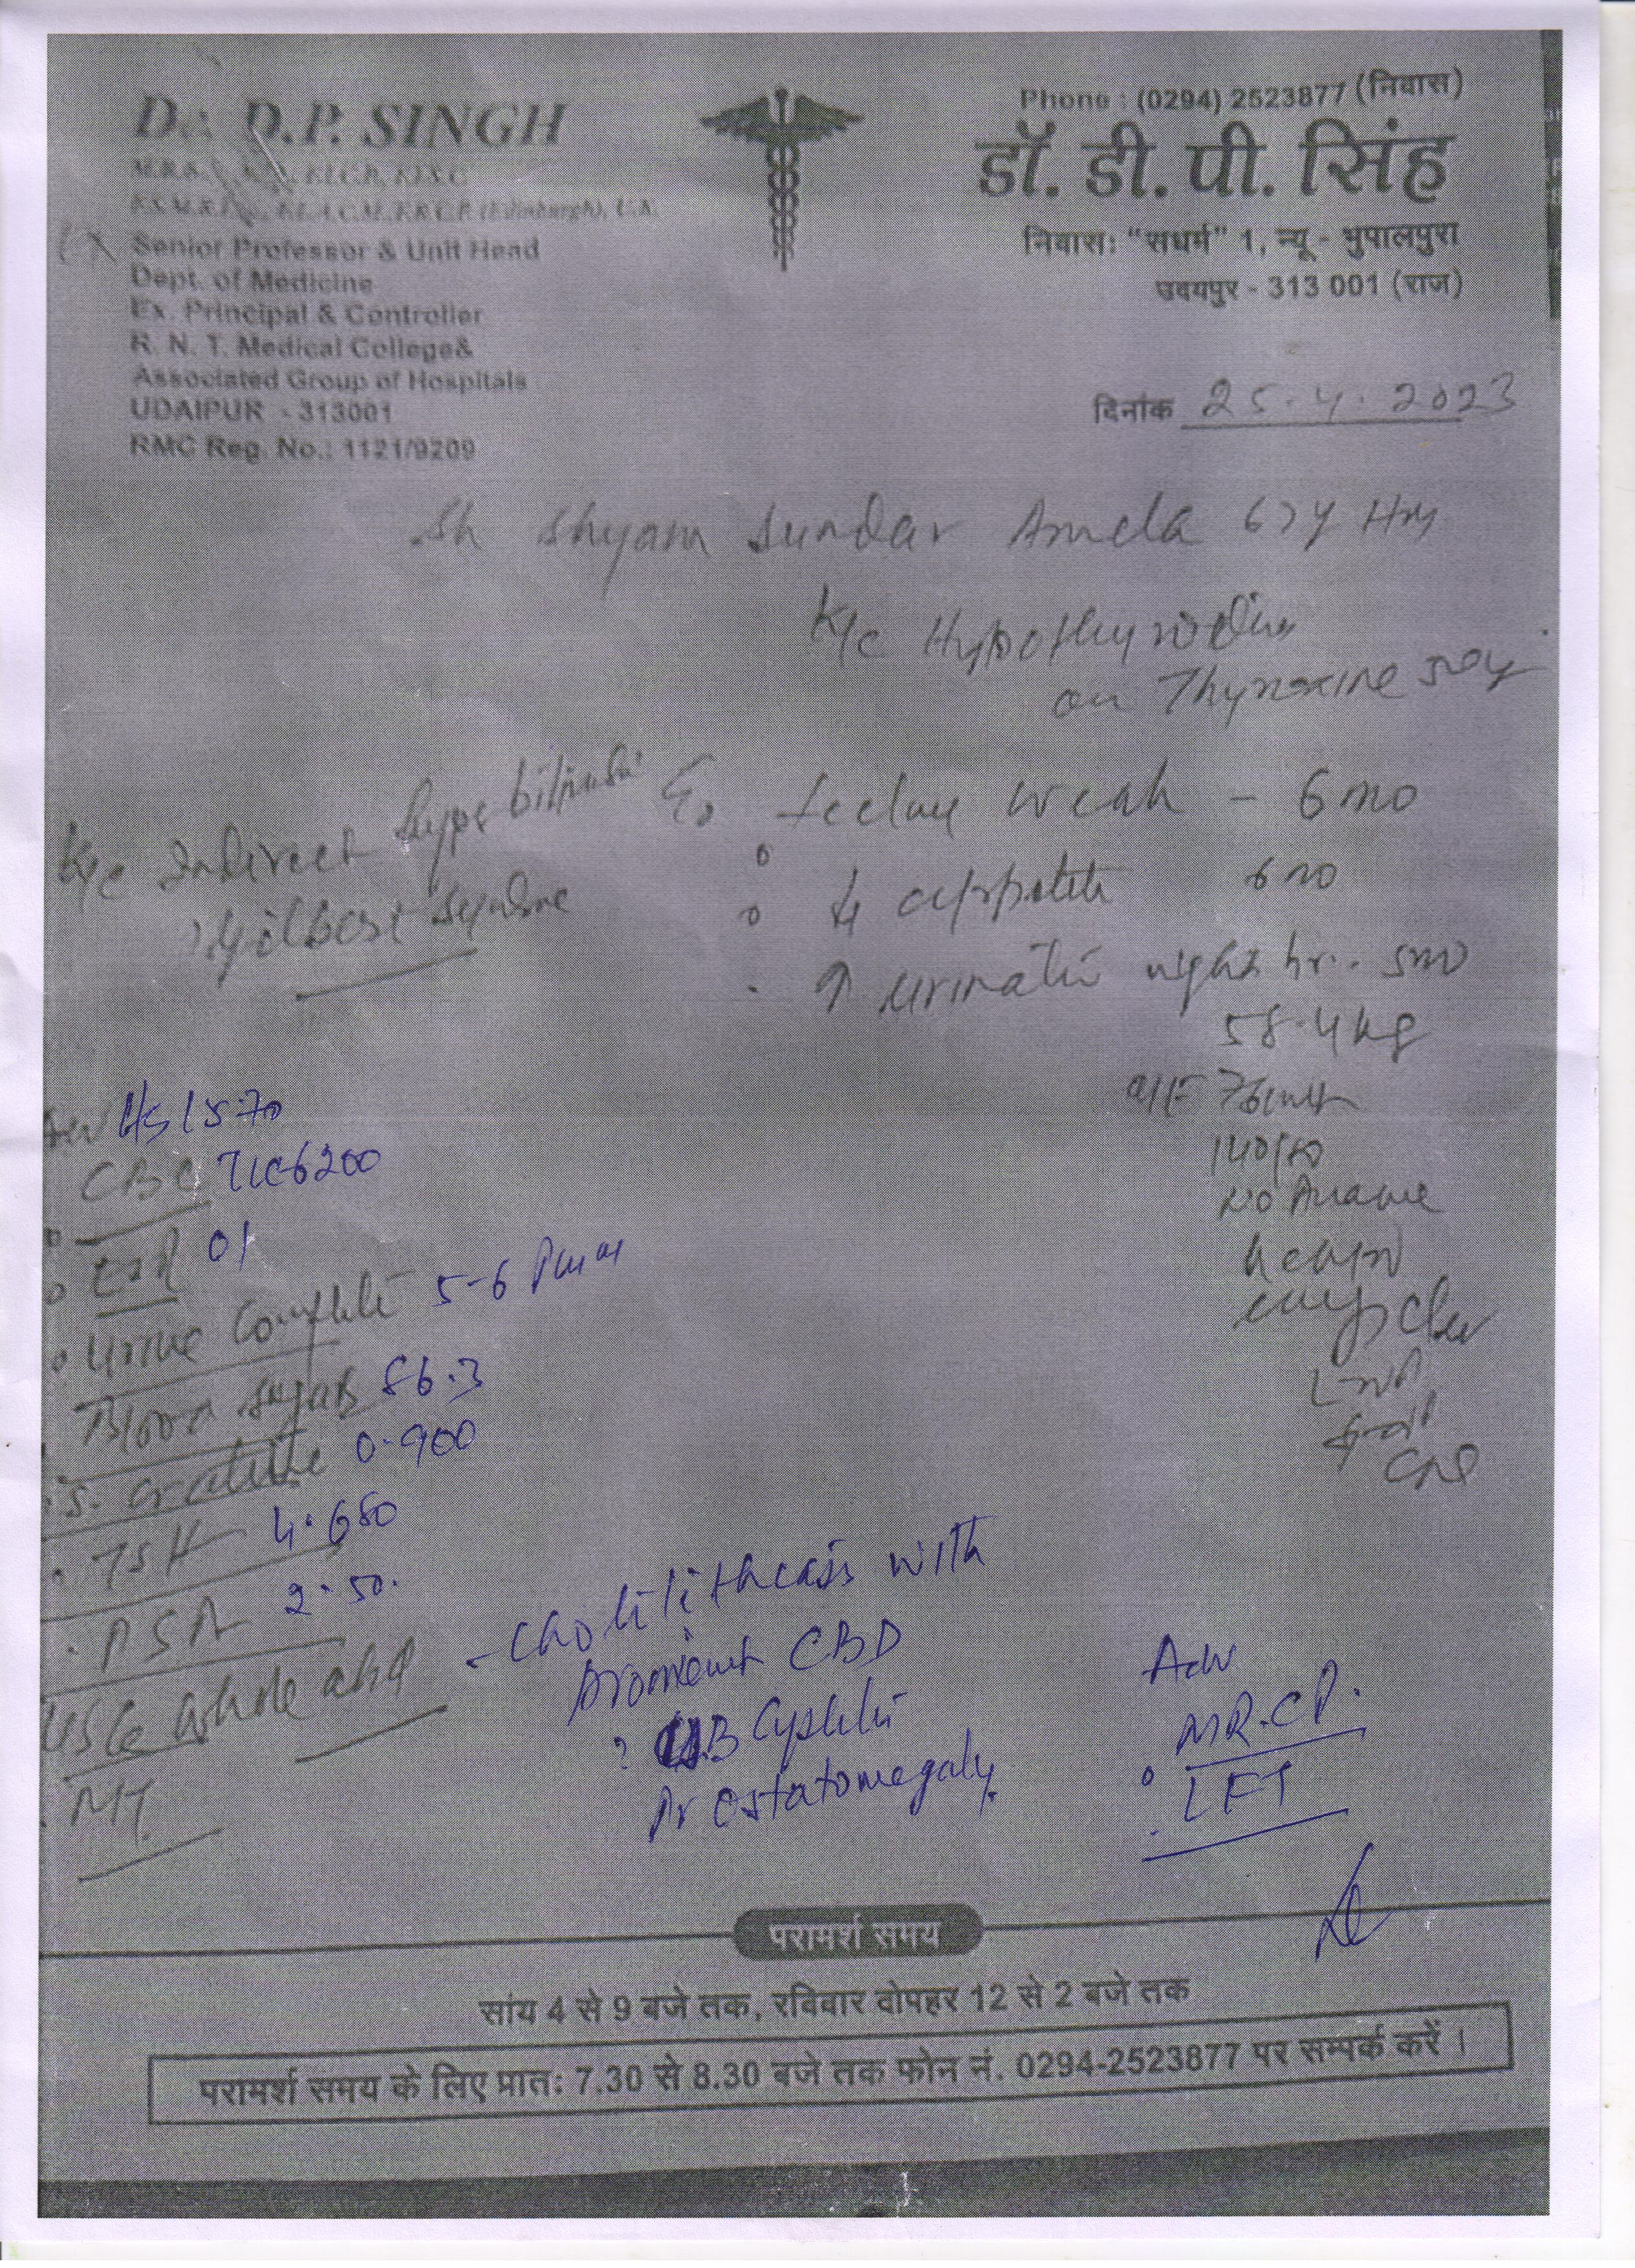 Dr. D.P. SINGH
F.R.C.P. (Edinburgh), U.K.
Senior Professor & Unit Head
Dept. of Medicine
Ex. Principal & Controller
R. N. T. Medical College&
Associated Group of Hospitals
UDAIPUR - 313001
RMC Reg. No.: 1121/9209
Phone : (0294) 2523877 (निवास)
डॉ. डी. पी. सिंह
निवास: “सधर्म” 1, न्यू - भुपालपुरा
उदयपुर - 313 001 (राज)
दिनांक 25.4.2023
Sh Shyam Sundar
K/c Hypothyroidism
on Thyroxine
K/c Indirect hyperbili
? Gilbert Syndrome
weak - 6 mo
↓ appetite 6 mo
↑ urination night hr..
58.4 kg
O/E 76/mt
140/80
Hb 15.70
CBC TLC 6200
ESR 01
Urine Complete 5-6
Blood sugar 86.3
S. creatinine 0.900
TSH 4.680
PSA 2.50.
USG Whole abd
MT
- Cholilithiasis with
prominent CBD
? UB Cystitis
Prostatomegaly
Adv
MR.CP.
LFT
परामर्श समय
सांय 4 से 9 बजे तक, रविवार दोपहर 12 से 2 बजे तक
परामर्श समय के लिए प्रात: 7.30 से 8.30 बजे तक फोन नं. 0294-2523877 पर सम्पर्क करें ।